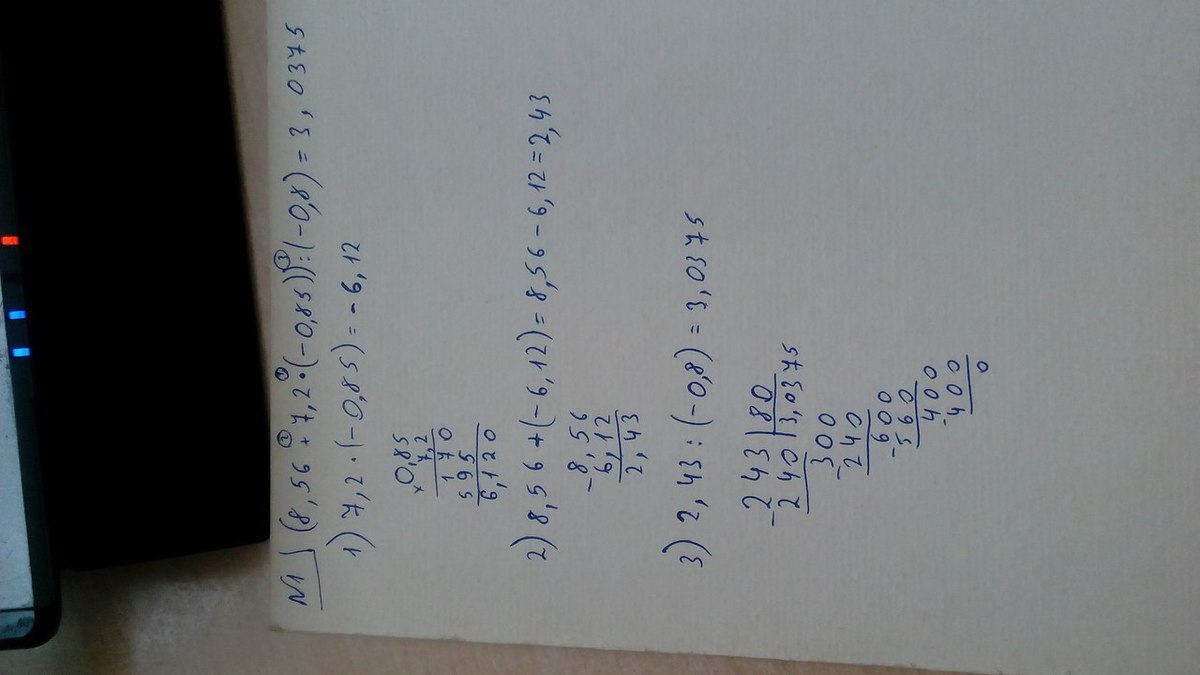 N1 (8,56 + 7,2 · (-0,85)) : (-0,8) = 3,0375
1) 7,2 · (-0,85) = -6,12
×0,85
7,2
170
595
6,120
2) 8,56 + (-6,12) = 8,56 - 6,12 = 2,43
-8,56
6,12
2,43
3) 2,43 : (-0,8) = 3,0375
-243|80
240|3,0375
300
-240
-600
560
-400
400
0